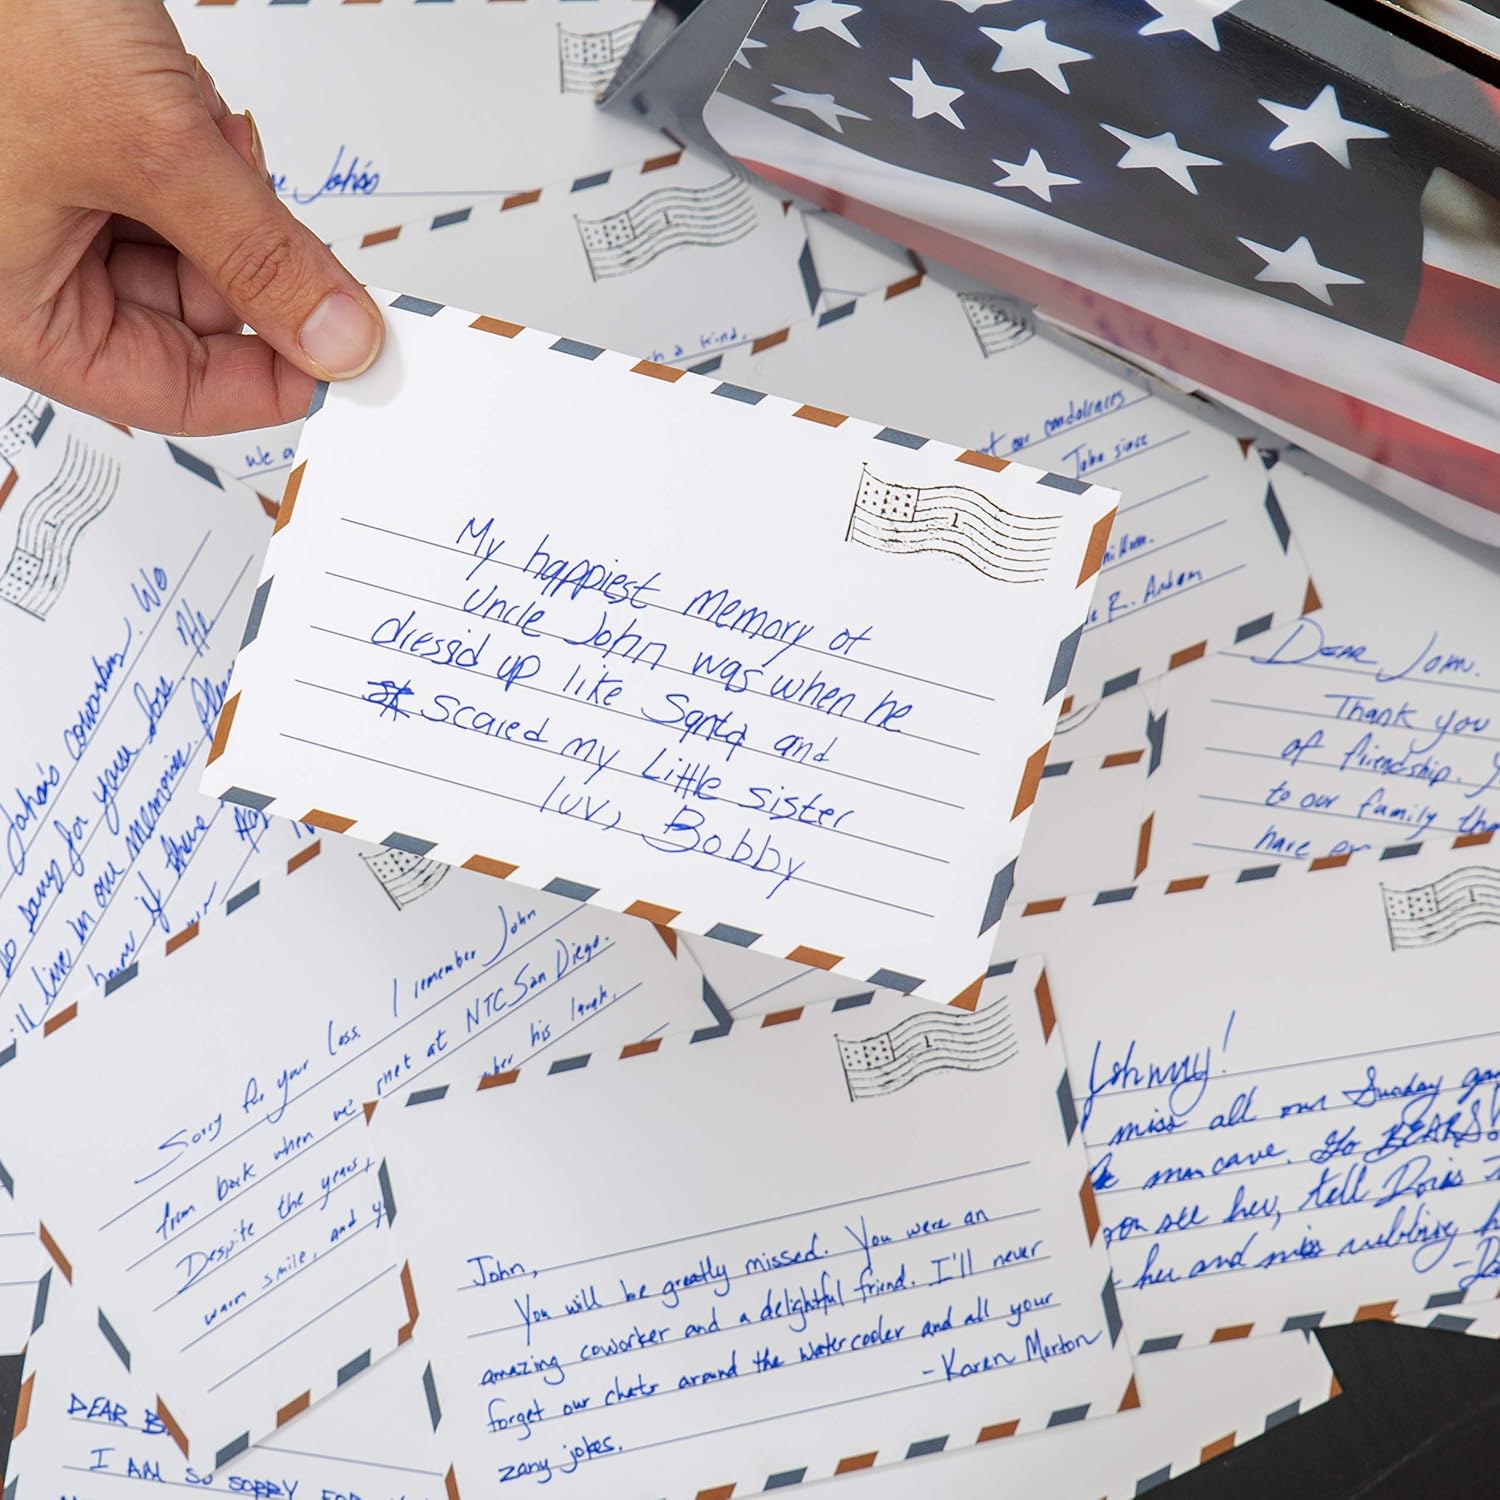 John's
h a kind.
We a
our condolences
John since
R.
My happiest memory of
Uncle John was when he
dressid up like Santa and
scared my Little sister
luv, Bobby
DEAR JOHN.
Thank you
of friendship.
to our family tha
have
John's coworkers. We
so sorry for your loss. He
'll live in our memories. Please
if there
Sorry for your loss. I remember John
from back when we met at NTC San Diego.
Despite the years,
his laugh,
warm smile, and y
Johnny!
miss all our Sunday ga
man cave. Go BEARS!
you see her, tell Doris I
her and miss rubbing h
John,
You will be greatly missed. You were an
amazing coworker and a delightful friend. I'll never
forget our chats around the water cooler and all your
zany jokes.
-Karen Marton
DEAR B
I AM SO SORRY FOR